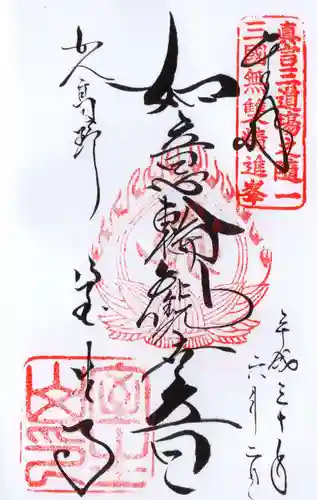 奉拝
真言三道場之随一
三國無雙精進峯
如意輪觀世音
女人高野
室生寺
平成三十年
六月二日